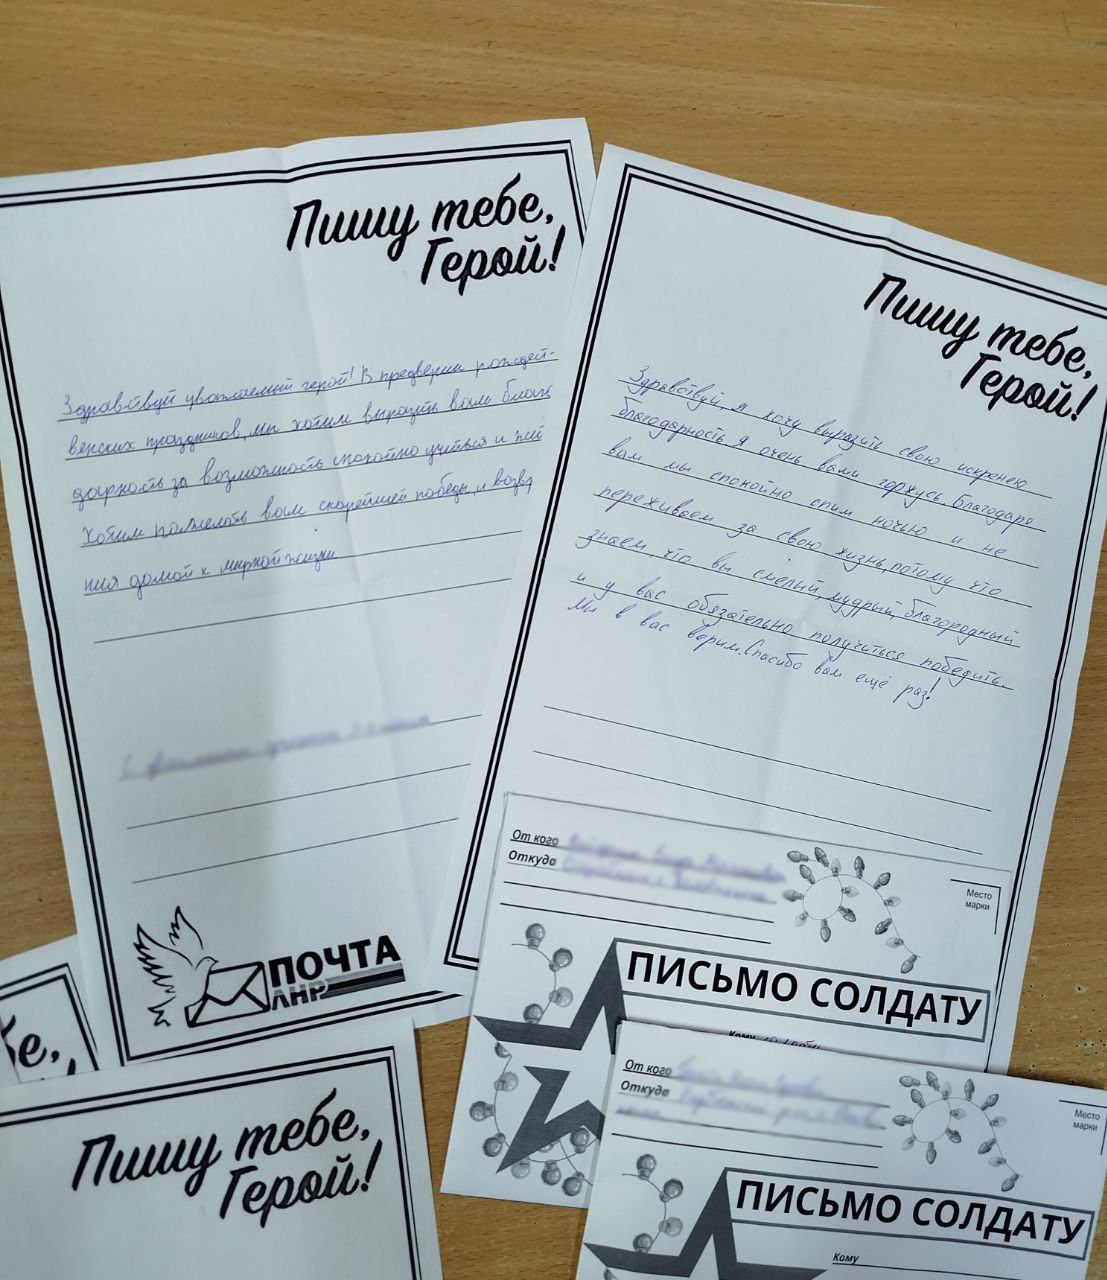 Пишу тебе,
Герой!
Здравствуй уважаемый герой! В предверии рождест-
венских праздников, мы хотим выразить вам благо
дарность за возможность спокойно учиться и жи
Хотим пожелать вам скорейшей победы, и возвр
ния домой к мирной жизни
ПОЧТА
ЛНР
Пишу тебе,
Герой!
Здравствуй, я хочу выразить свою искренею
благодарность. Я очень вами горжусь, благодаря
вам мы спокойно спим ночью и не
переживаем за свою жизнь, потому что
знаем, что вы смелый, мудрый, благородный
и у вас обязательно получиться победить.
Мы в вас верим. Спасибо вам ещё раз!
От кого
Откуда
Место
марки
ПИСЬМО СОЛДАТУ
Кому
От кого
Откуда
Место
марки
ПИСЬМО СОЛДАТУ
Кому
е,
Пишу тебе,
Герой!